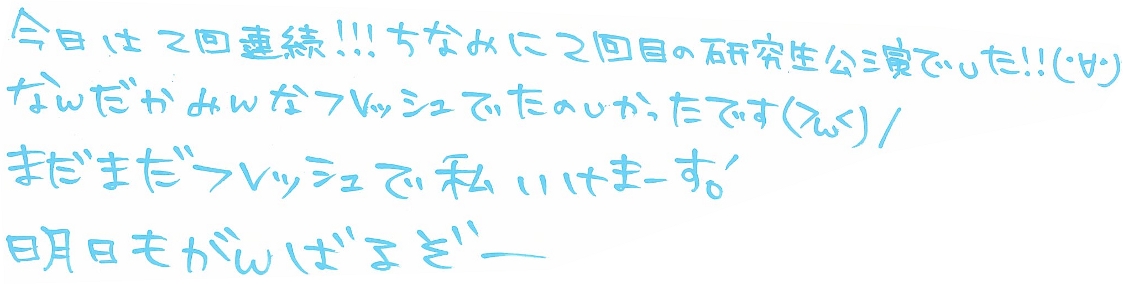 今日は2回連続!!!ちなみに2回目の研究生公演でした!!(・∀・)
なんだかみんなフレッシュでたのしかったです(>ω<)/
まだまだフレッシュで私いけまーす。'
明日もがんばるぞー